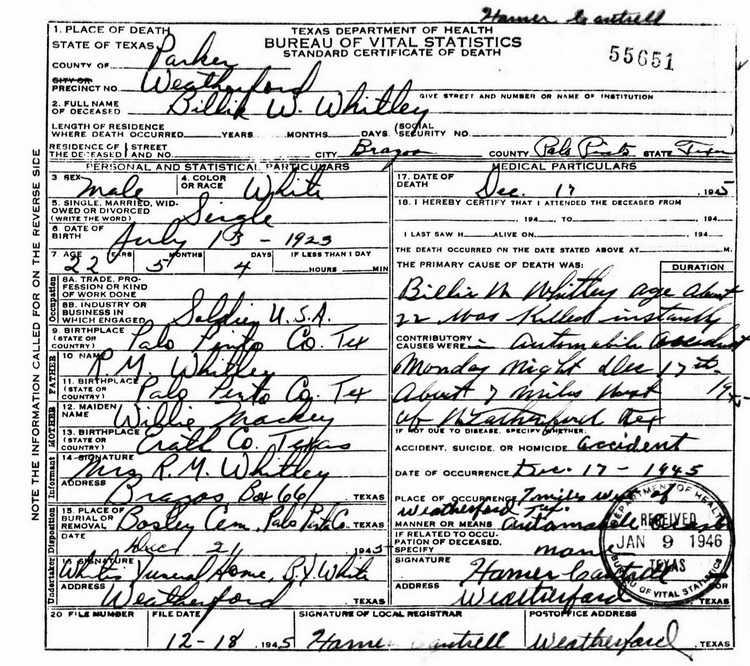 Homer Cantrell
1. PLACE OF DEATH
STATE OF TEXAS
COUNTY OF Parker
CITY OR
PRECINCT NO. Weatherford
TEXAS DEPARTMENT OF HEALTH
BUREAU OF VITAL STATISTICS
STANDARD CERTIFICATE OF DEATH
55651
GIVE STREET AND NUMBER OR NAME OF INSTITUTION
2. FULL NAME
OF DECEASED Billie W. Whitley
LENGTH OF RESIDENCE
WHERE DEATH OCCURRED YEARS MONTHS DAYS (SOCIAL SECURITY NO.
RESIDENCE OF STREET
THE DECEASED AND NO. CITY Brazos COUNTY Palo Pinto STATE Texas
PERSONAL AND STATISTICAL PARTICULARS
3 SEX Male 4. COLOR OR RACE White
5. SINGLE, MARRIED, WIDOWED OR DIVORCED
(WRITE THE WORD) Single
6 DATE OF
BIRTH July 13 - 1923
7 AGE YEARS MONTHS DAYS IF LESS THAN 1 DAY
22 5 4 HOURS MIN
Occupation
8A. TRADE, PROFESSION OR KIND
OF WORK DONE
8B. INDUSTRY OR
BUSINESS IN
WHICH ENGAGED Soldier U.S.A.
9. BIRTHPLACE
(STATE OR
COUNTRY) Palo Pinto Co. Tex
FATHER
10 NAME R.M. Whitley
11. BIRTHPLACE
(STATE OR
COUNTRY) Palo Pinto Co. Tex
MOTHER
12. MAIDEN
NAME Willie Mackey
13. BIRTHPLACE
(STATE OR
COUNTRY) Erath Co. Texas
Informant
14 SIGNATURE Mrs R.M. Whitley
ADDRESS Brazos Box 66 TEXAS
Disposition
15. PLACE OF
BURIAL OR
REMOVAL Bosley Cem. Palo Pinto Co.
DATE Dec 21 1945 TEXAS
Undertaker
16 SIGNATURE White's Funeral Home, B.Y. White
ADDRESS Weatherford TEXAS
MEDICAL PARTICULARS
17. DATE OF
DEATH Dec. 17 1945
18. I HEREBY CERTIFY THAT I ATTENDED THE DECEASED FROM
194 TO 194
I LAST SAW H ALIVE ON 194
THE DEATH OCCURRED ON THE DATE STATED ABOVE AT M.
THE PRIMARY CAUSE OF DEATH WAS: DURATION
Billie W Whitley age about
22 was killed instantly
CONTRIBUTORY
CAUSES WERE in automobile accident
Monday night Dec 17th
1945
About 7 miles West
of Weatherford Tex
IF NOT DUE TO DISEASE, SPECIFY WHETHER
ACCIDENT, SUICIDE, OR HOMICIDE accident
DATE OF OCCURRENCE Dec. 17 - 1945
PLACE OF OCCURRENCE 7 miles West of
Weatherford Tex.
MANNER OR MEANS automobile
IF RELATED TO OCCUPATION OF DECEASED,
SPECIFY none
SIGNATURE Homer Cantrell
ADDRESS Weatherford
DEPARTMENT OF HEALTH
RECEIVED
JAN 9 1946
TEXAS
BUREAU OF VITAL STATISTICS
20 FILE NUMBER FILE DATE SIGNATURE OF LOCAL REGISTRAR POSTOFFICE ADDRESS
12-18 1945 Homer Cantrell Weatherford, TEXAS
NOTE THE INFORMATION CALLED FOR ON THE REVERSE SIDE